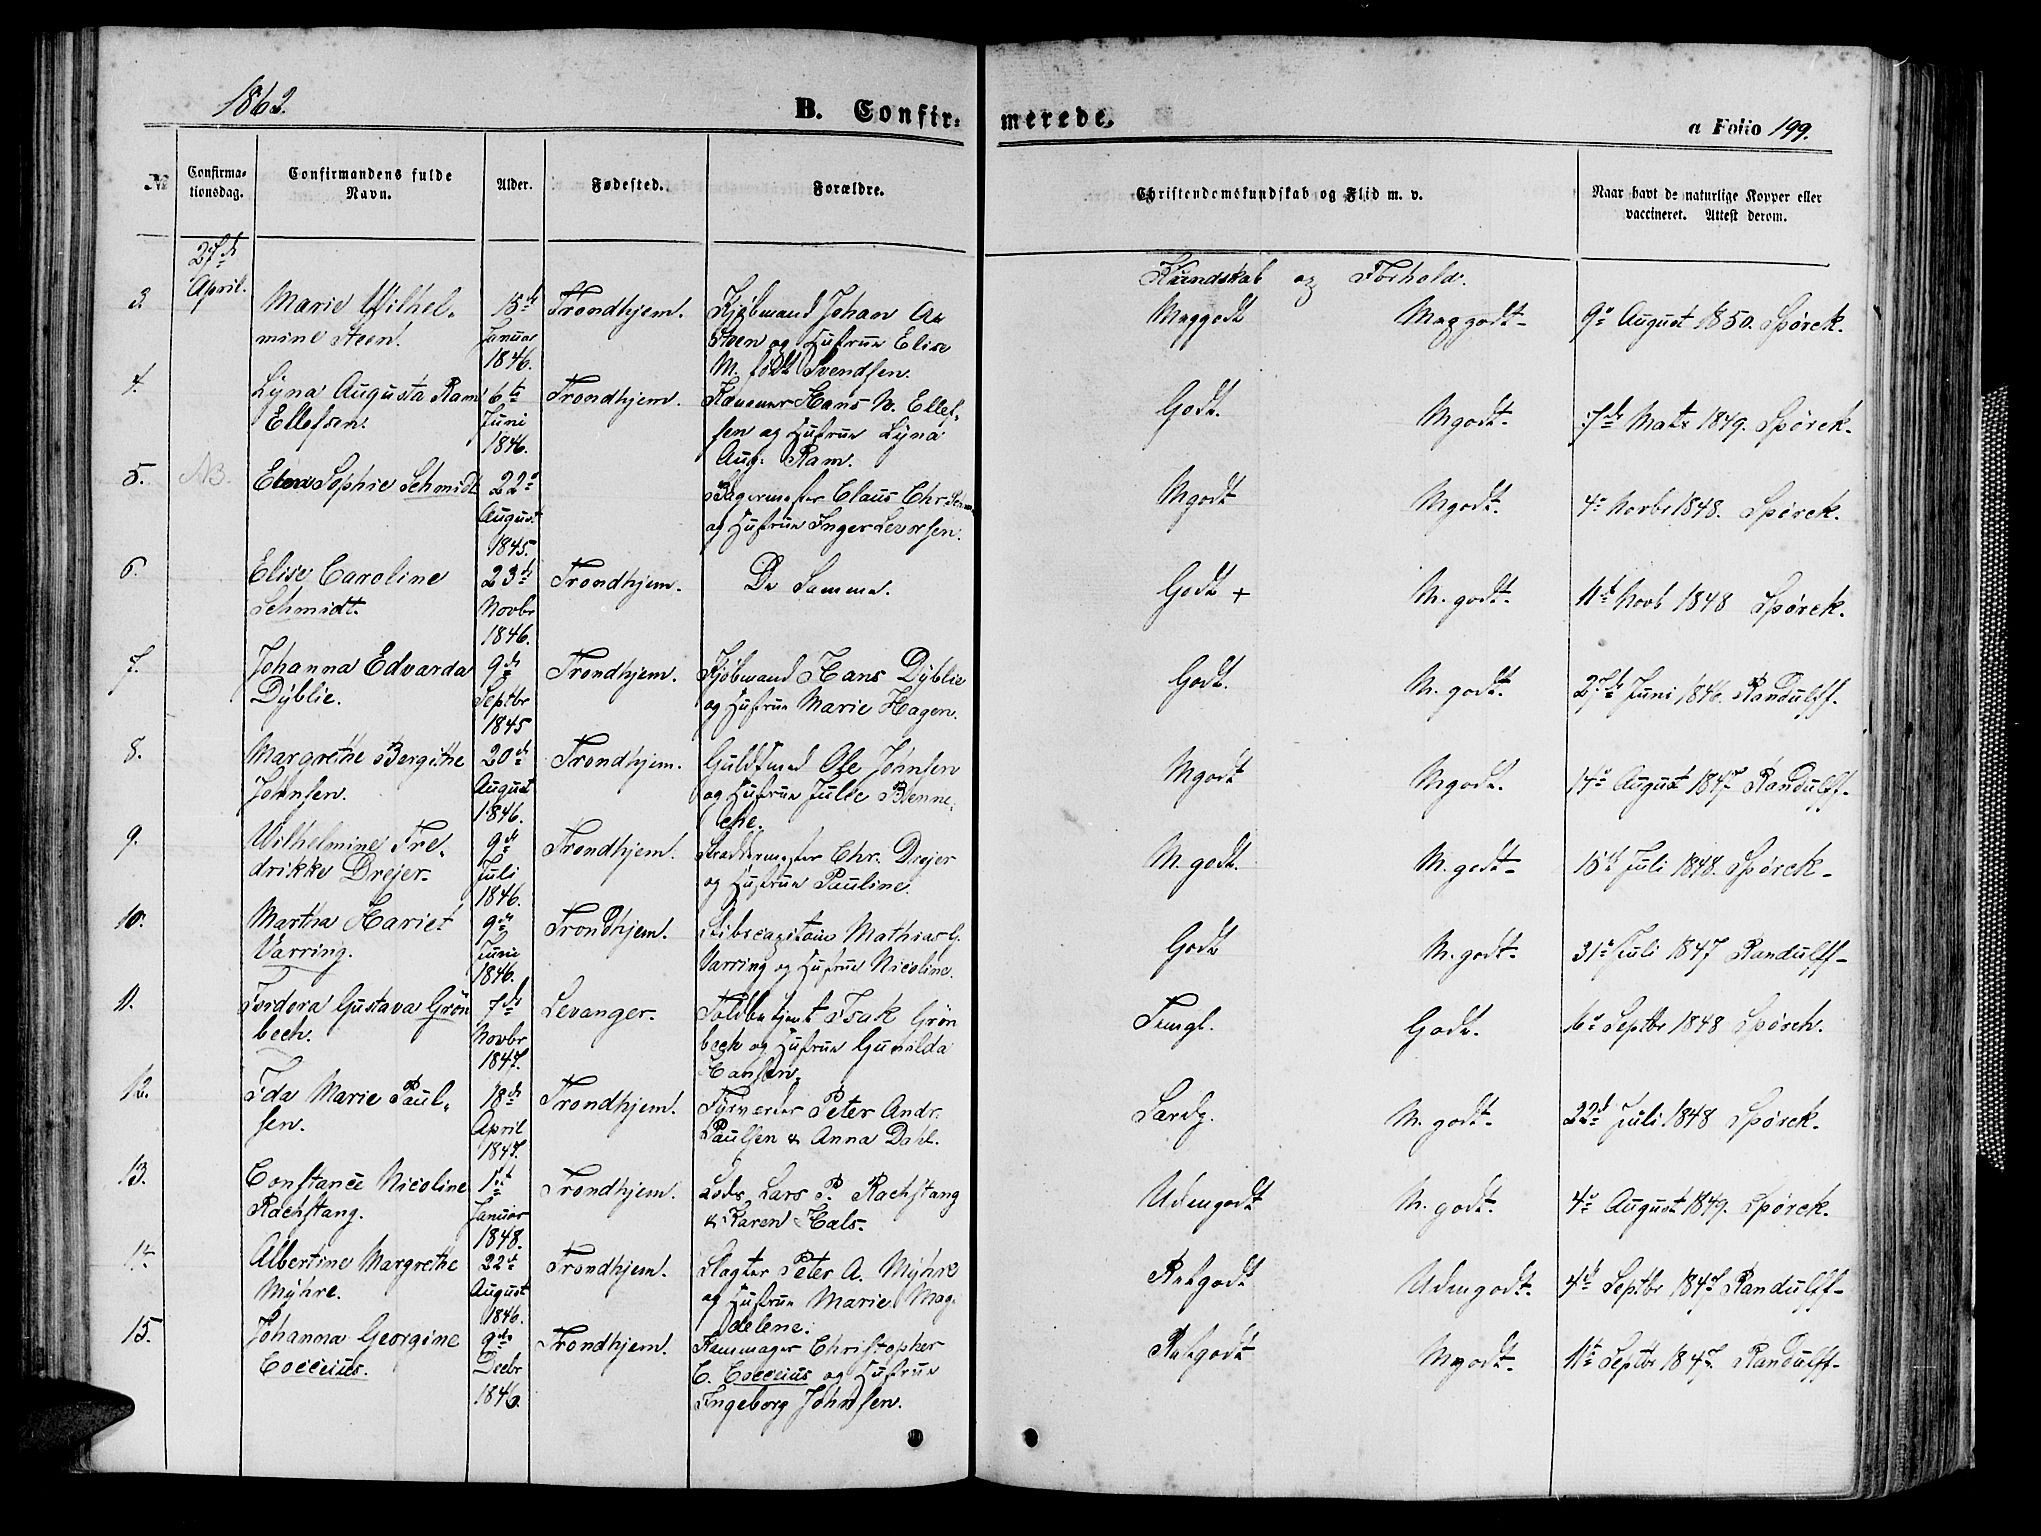 1862.
B. Confir-
merede.
a Folio 199.
№
Confirma-
tionsdag.
Confirmandens fulde
Navn.
Alder.
Fødested.
Forældre.
Christendomskundskab og Flid m. v.
Naar havt de naturlige Kopper eller
vaccineret. Attest derom.
27de
April.
Kundskab og Forhold.
3
Marie Wilhel-
mine Steen.
15de
Januar
1846.
Trondhjem.
Kjøbmand Johan
Steen og Hustrue Elise
M. født Svendsen.
Meggodt
Meggodt
9e August 1850. Spörck.
4.
Lyna Augusta Ram
Ellefsen.
6te
Juni
1846.
Trondhjem.
Hans N. Ellef-
sen og Hustrue Lyna
Aug. Ram.
Godt.
Mgodt.
1849. Spörck.
5.
NB.
Sophie Schmidt
22e
August
1845.
Bagermester Claus Chr.
og Hustrue Inger Levorsen.
Mgodt
Mgodt.
4e Novbr 1848. Spörck.
6.
Elise Caroline
Schmidt.
23de
Novbr
1846.
Trondhjem.
De Samme.
Godt +
M. godt.
11te Novb 1848 Spörck.
7.
Johanna Edvarda
Dyblie.
9de
Septbr
1845
Trondhjem.
Kjøbmand Hans Dyblie
og Hustrue Marie Hagen.
Godt.
M. godt.
27de Juni 1846. Randulff.
8.
Margrethe Bergithe
Johnsen.
20de
August
1846.
Trondhjem.
Guldsmed Ole Johnsen
og Hustrue Julie Benne-
che.
Mgodt
Mgodt.
14e August 1847 Randulff.
9.
Wilhelmine Fre-
drikke Drejer.
9de
Juli
1846.
Trondhjem.
Chr. Drejer
og Hustrue Pauline.
M. godt.
M. godt
15de Juli 1848. Spörck
10.
Martha Hariet
Varring.
9de
Juni
1846.
Trondhjem.
Skibscapitain Mathias G.
Varring og Hustrue Nicoline.
Godt
M. godt.
31e Juli 1847 Randulff
11.
Tordora Gustava Grön
bech.
7de
Novbr
1847.
Levanger.
Toldbetjent Isak Grön
bech og Hustrue Gunilda
Hansen.
Temgl.
Godt.
6e Septbr 1848 Spörck.
12.
Ida Marie Paul-
sen.
18de
April
1847.
Trondhjem.
Peter Andr.
Paulsen & Anna Dahl.
Særdg.
M. godt.
22de Juli 1848 Spörck.
13.
Constance Nicoline
Rachstang.
1ste
Januar
1848.
Trondhjem.
Lods Lars P. Rachstang
& Karen Hals.
Udmgodt
M. godt.
4e August 1849. Spörck.
14.
Albertine Margrethe
Myhre.
22de
August
1846.
Trondhjem.
Slagter Peter A. Myhre
og Hustrue Marie Mag-
delene.
Udmgodt.
4de Septbr 1847 Randulff
15.
Johanna Georgine
Cocccius.
9de
Decbr
1846.
Trondhjem.
Kammager Christopher
C. Cocccius og Hustrue
Ingeborg Johnsen.
Mgodt
11te Septbr 1847. Randulff